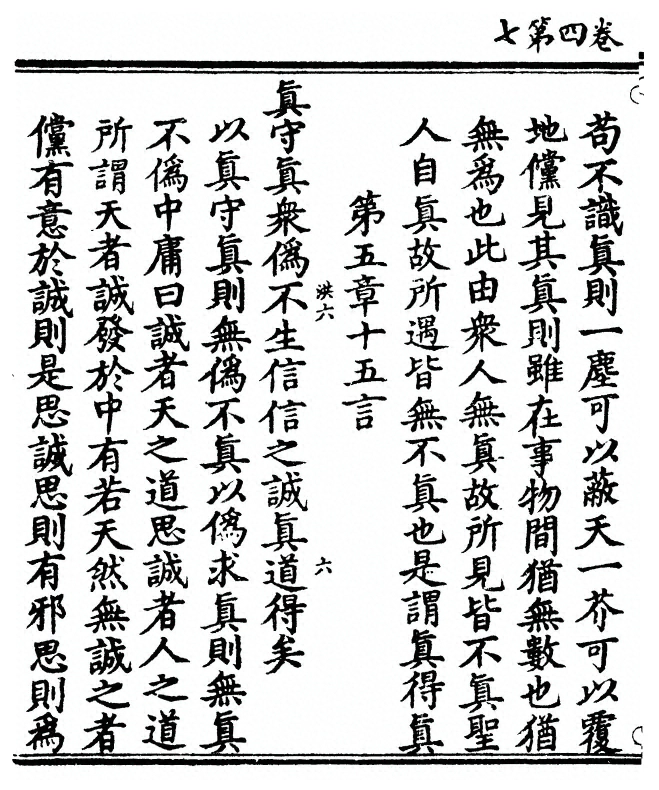 卷四第七
苟不識眞則一塵可以蔽天一芥可以覆
地儻見其眞則雖在事物間猶無數也猶
無爲也此由衆人無眞故所見皆不眞聖
人自眞故所遇皆無不眞也是謂眞得眞
第五章十五言
洪六
六
眞守眞衆僞不生信信之誠眞道得矣
以眞守眞則無僞不眞以僞求眞則無眞
不僞中庸曰誠者天之道思誠者人之道
所謂天者誠發於中有若天然無誠之者
儻有意於誠則是思誠思則有邪思則爲